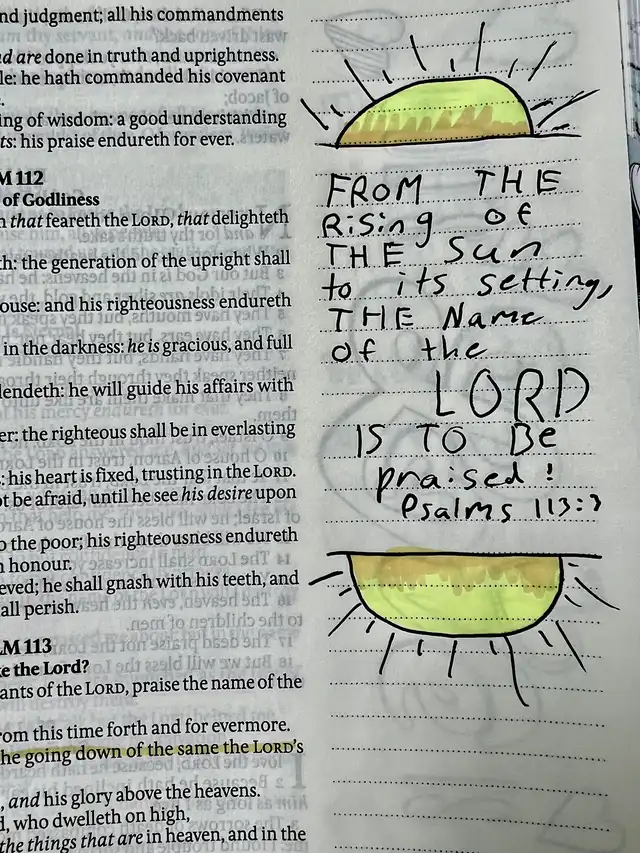 nd judgment; all his commandments
d are done in truth and uprightness.
le: he hath commanded his covenant
ing of wisdom: a good understanding
ts: his praise endureth for ever.
M 112
of Godliness
n that feareth the LORD, that delighteth
th: the generation of the upright shall
ouse: and his righteousness endureth
in the darkness: he is gracious, and full
lendeth: he will guide his affairs with
er: the righteous shall be in everlasting
: his heart is fixed, trusting in the LORD.
ot be afraid, until he see his desire upon
o the poor; his righteousness endureth
h honour.
eved; he shall gnash with his teeth, and
all perish.
LM 113
ke the Lord?
ants of the LORD, praise the name of the
rom this time forth and for evermore.
he going down of the same the LORD's
, and his glory above the heavens.
d, who dwelleth on high,
the things that are in heaven, and in the
FROM THE
Rising of
THE Sun
to its setting,
THE Name
of the
LORD
IS TO Be
praised!
Psalms 113:3